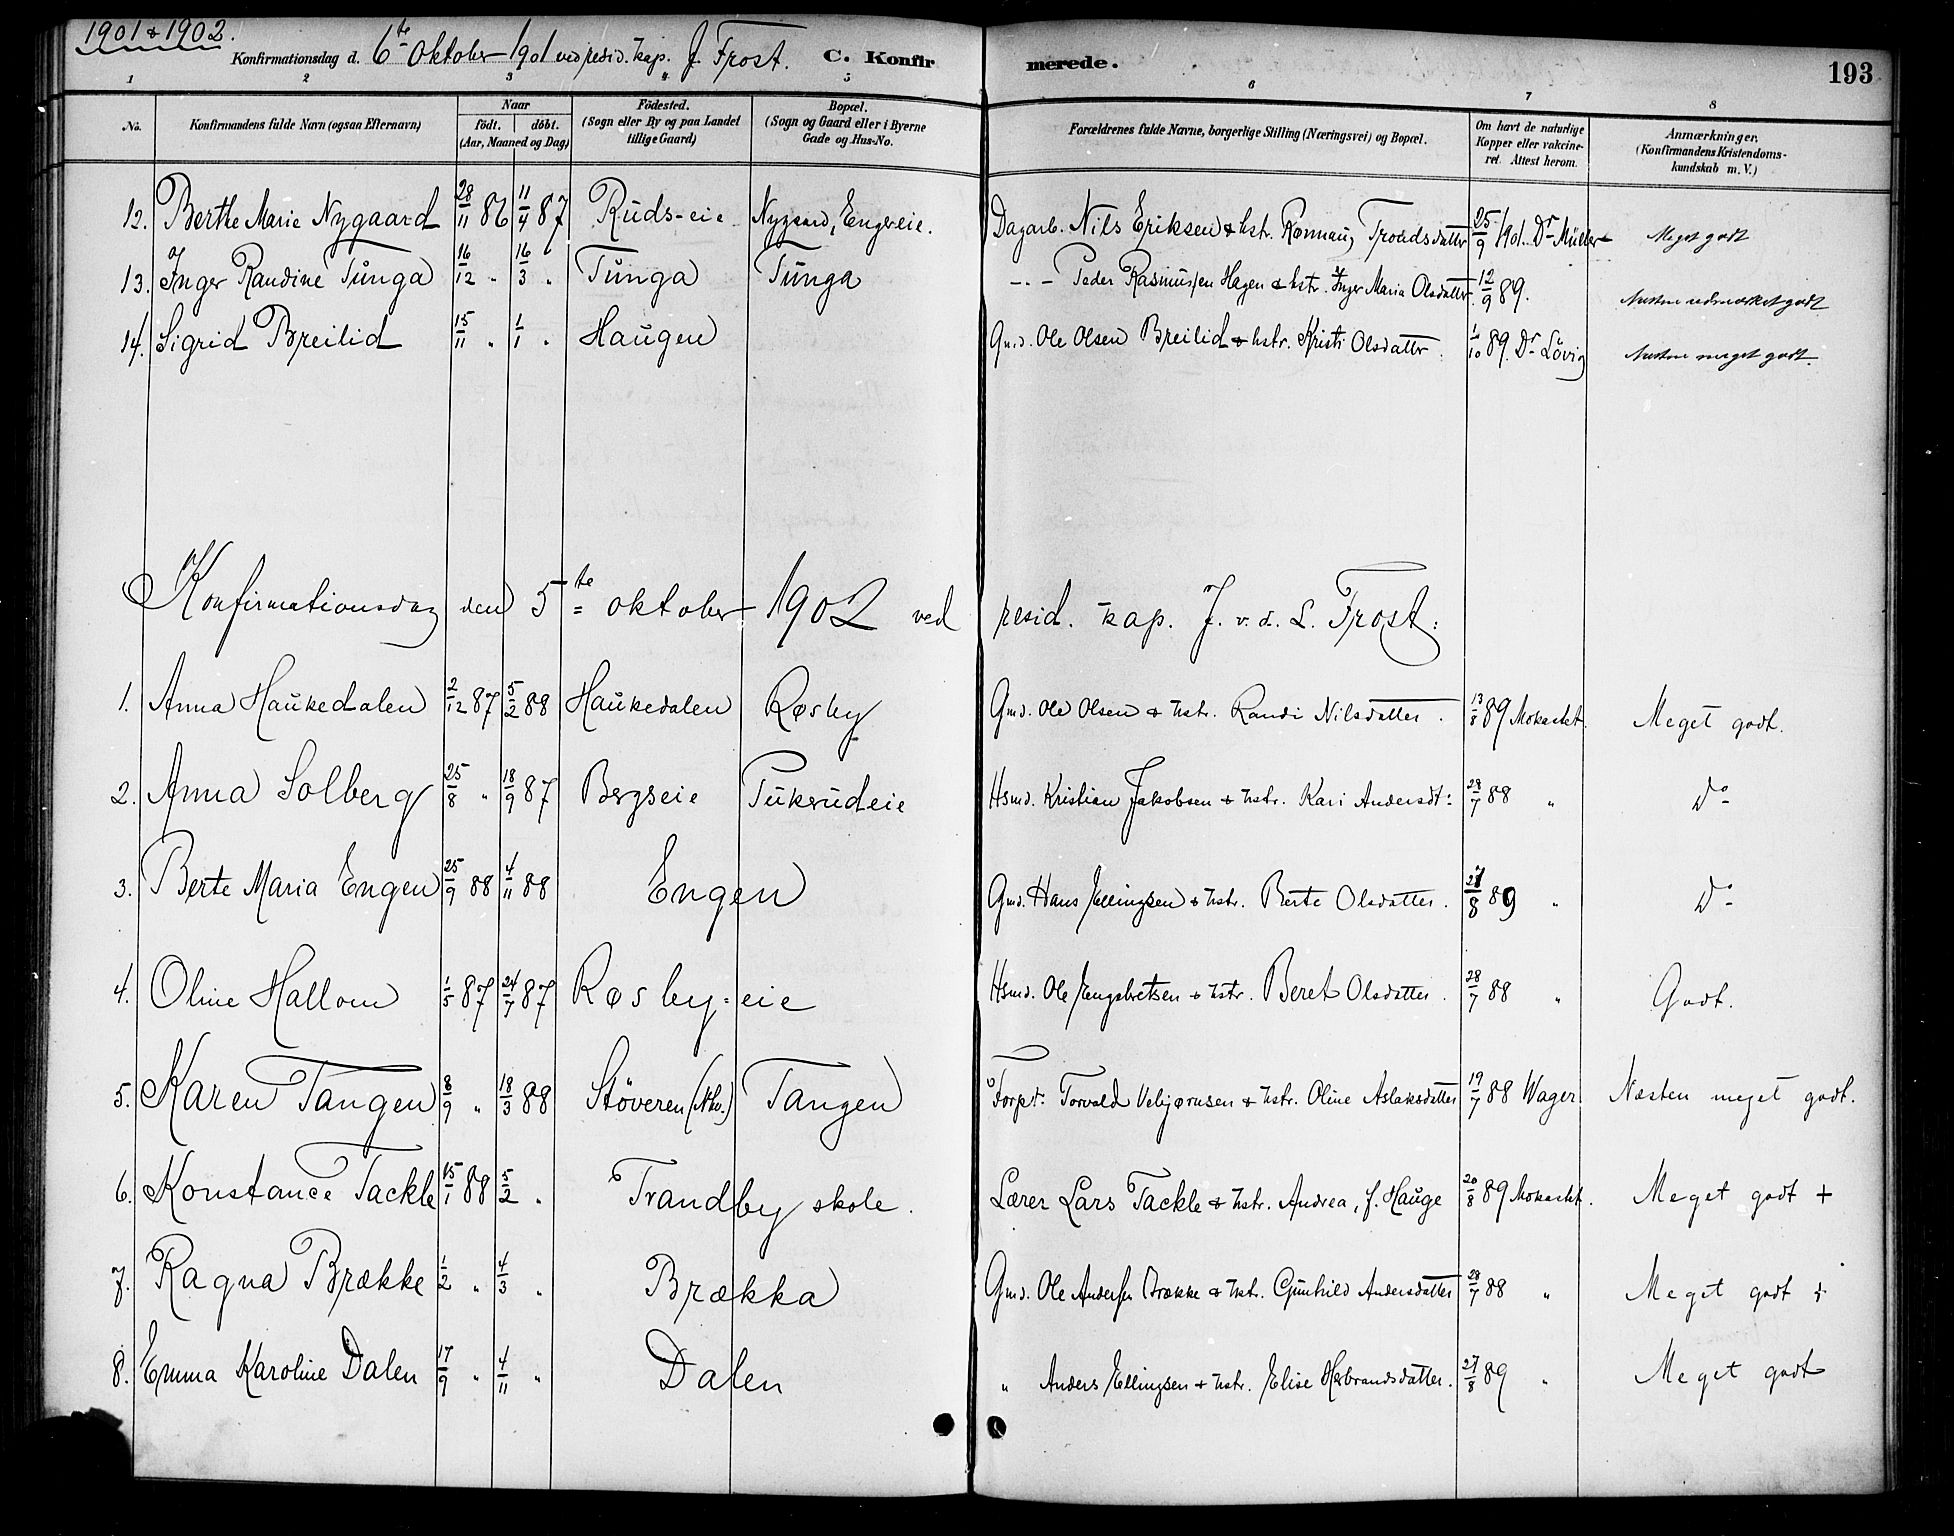 1901 & 1902.
Konfirmationsdag d. 6te Oktober 1901 ved resid. kap. J. Frost. C. Konfirmerede. 193
1 2 3 4 5 6 7 8
No. Konfirmandens fulde Navn (ogsaa Efternavn) Naar födt. döbt. (Aar, Maaned og Dag) Födested. (Sogn eller By og paa Landet tillige Gaard) Bopæl. (Sogn og Gaard eller i Byerne Gade og Hus-No. Forældrenes fulde Navne, borgerlige Stilling (Næringsvei) og Bopæl. Om havt de naturlige Kopper eller vakcineret. Attest herom. Anmærkninger, (Konfirmandens Kristendomskundskab m. V.)
12. Berthe Marie Nygaard 28/11 86 11/4 87 Ruds-eie Nygaard, Engseie. Dagarb. Nils Eriksen & hstr. Rønnaug Trondsdatter 25/9 1901. Dr Müller Meget godt
13. Inger Randine Tunga 16/12 " 16/3 " Tunga Tunga -"- Peder Rasmussen Hagen & hstr. Inger Maria Olsdatter 12/9 89. Næsten udmærket godt
14. Sigrid Breilid 15/11 " 1/1 " Haugen Gmd. Ole Olsen Breilid & hstr. Kristi Olsdatter. 1/10 89. Dr Lövig Næsten meget godt.
Konfirmationsdag den 5te oktober 1902 ved resid. kap. J. v. d. L. Frost:
1. Anna Haukedalen 2/12 87 5/2 88 Haukedalen Røsby Gmd. Ole Olsen & hstr. Randi Nilsdatter. 13/8 89 Mokastet. Meget godt.
2. Anna Solberg 25/8 " 18/9 87 Bergseie Tukerudeie Hsmd. Kristian Jakobsen & hstr. Kari Andersdt: 28/7 88 " Do
3. Berte Maria Engen 25/9 88 4/11 88 Engen Gmd. Hans Ellingsen & hstr. Berte Olsdatter. 27/8 89 " Do
4. Oline Hallom 1/5 87 24/7 87 Røsby-eie Hsmd. Ole Engebretsen & hstr. Beret Olsdatter. 28/7 88 " Godt.
5. Karen Tangen 8/9 " 18/3 88 Stöveren Tangen Forpt. Torvald Vebjørnsen & hstr. Oline Aslaksdatter 19/7 88 Wager Næsten meget godt.
6. Konstance Tackle 15/1 88 5/2 " Trandby skole. Lærer Lars Tackle & hstr. Andrea, f. Hauge 20/8 89 Mokastet. Meget godt +
7. Ragna Brække 1/2 " 4/3 " Brækka Gmd. Ole Andersen Brække & hstr. Gunhild Andersdatter 28/7 88 " Meget godt +
8. Emma Karoline Dalen 17/9 " 4/11 " Dalen " Anders Ellingsen & hstr. Elise Herbrandsdatter. 27/8 89 " Meget godt